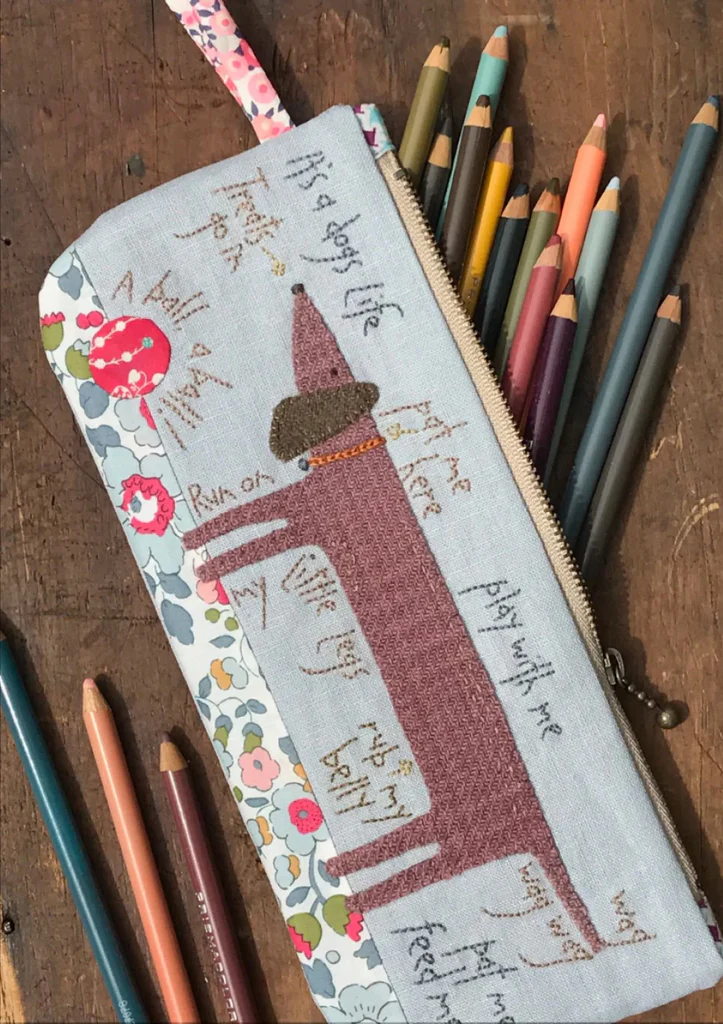 It's a dogs life
Treats
go in
A ball, a ball!
pat me
here
Run on
my
little legs
play with me
rub my
belly
wag wag
wag
pat me
feed me
PRISMACOLOR